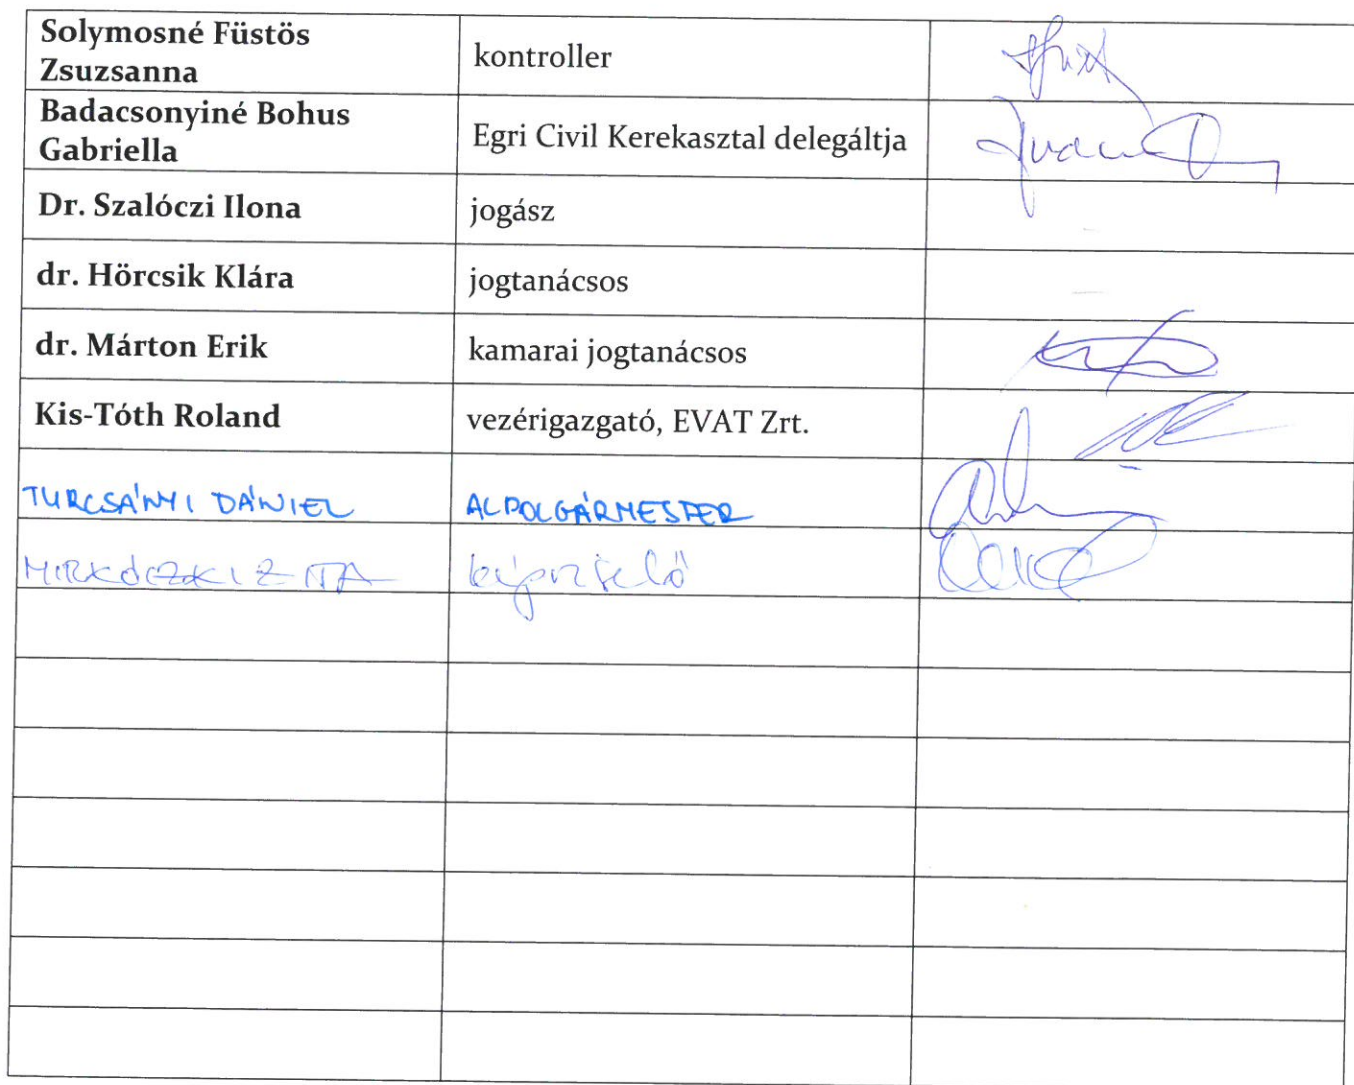 Solymosné Füstös
Zsuzsanna
kontroller
Badacsonyiné Bohus
Gabriella
Egri Civil Kerekasztal delegáltja
Dr. Szalóczi Ilona
jogász
dr. Hörcsik Klára
jogtanácsos
dr. Márton Erik
kamarai jogtanácsos
Kis-Tóth Roland
vezérigazgató, EVAT Zrt.
TURCSÁNYI DÁNIEL
ALPOLGÁRMESTER
MIRKÓCZKI ZITA
képviselő